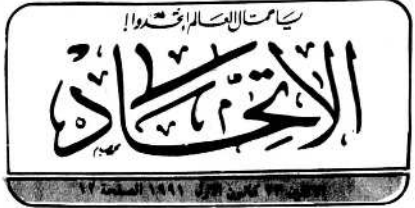 يا عمال العالم اتحدوا!
الاتحاد
٢٢ كانون الأول ١٩٩١ الصفحة ١٢